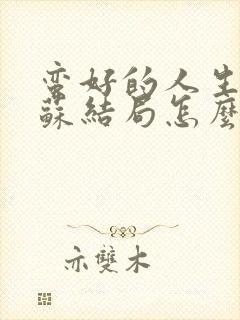 蛮好的人生
蘇結局怎麼
亦雙木